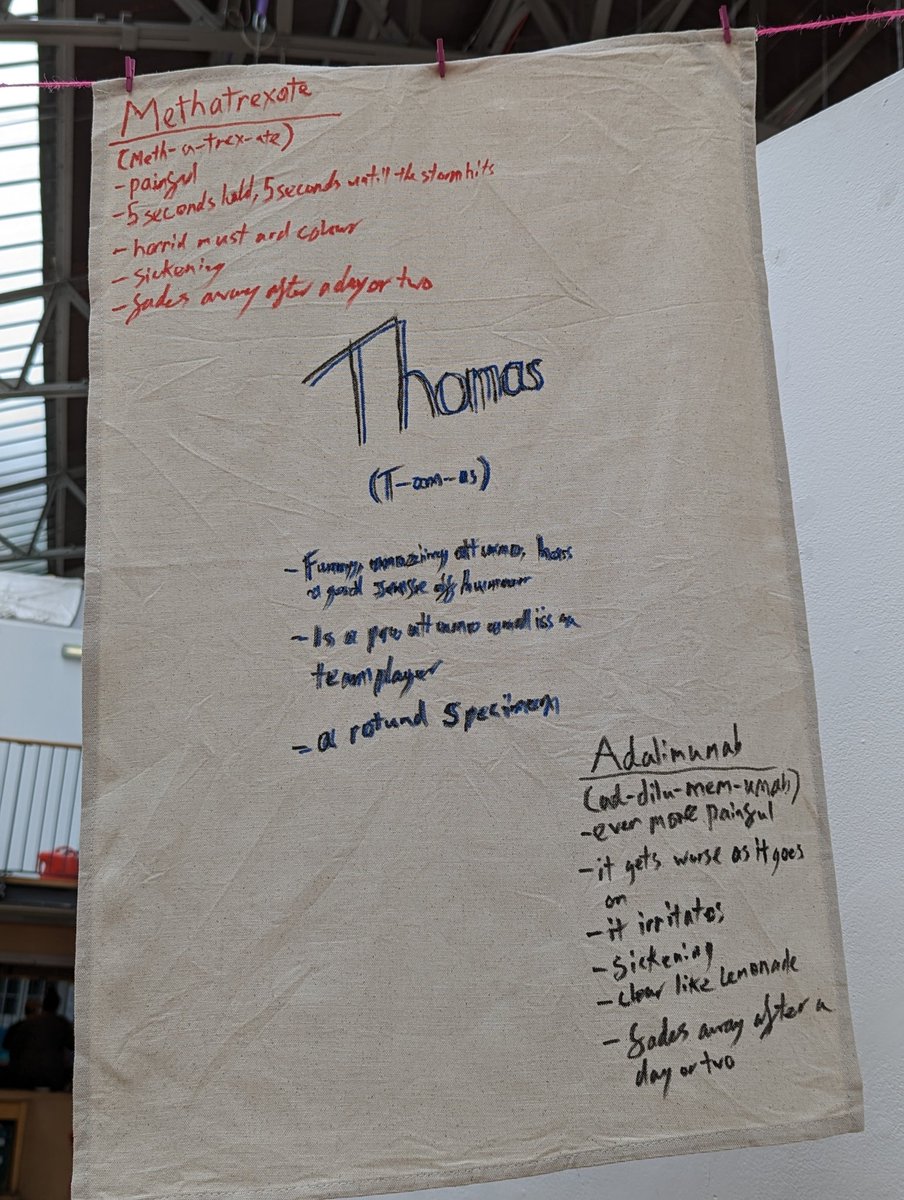 Methatrexate
(Meth-a-trex-ate)
- painful
- 5 seconds hold, 5 seconds untill the storm hits
- horrid must ard colour
- sickening
- fades away after a day or two
Thomas
(T-om-as)
- Funny, amazing at uno, has
a good sense of humour
- Is a pro at uno and is a
team player
- a rotund specimen
Adalimumab
(ad-dilu-mem-umab)
- ever more painful
- it gets worse as it goes
on
- it irritates
- sickening
- clear like lemonade
- fades away after a
day or two